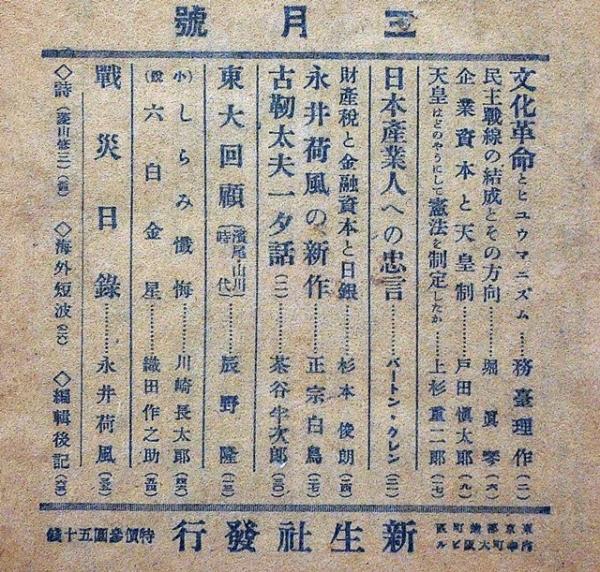 三月號
文化革命とヒユウマニズム………務臺理作(二)
民主戰線の結成とその方向………堀眞琴(六)
企業資本と天皇制………戸田愼太郎(九)
天皇はどのやうにして憲法を制定したか……上杉重二郎(一七)
日本產業人への忠言………バートン・クレン(二一)
財產稅と金融資本と日銀………杉本俊朗(二四)
永井荷風の新作………正宗白鳥(二七)
古靭太夫一夕話(二)………茶谷半次郎(三〇)
東大回顧(濱尾・山川時代)………辰野隆(一三)
(小說)しらみ懺悔………川崎長太郎(四六)
六白金星………織田作之助(五四)
戰災日錄………永井荷風(三五)
◇詩(菱山修三) ◇海外短波 ◇編輯後記
新生社發行
特價參圓五十錢